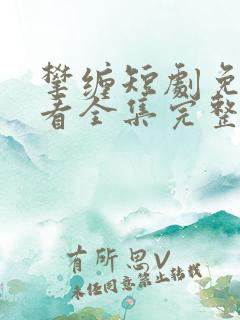 攀缠短劇免
看全集完整
有所思V
未经同意禁止转载